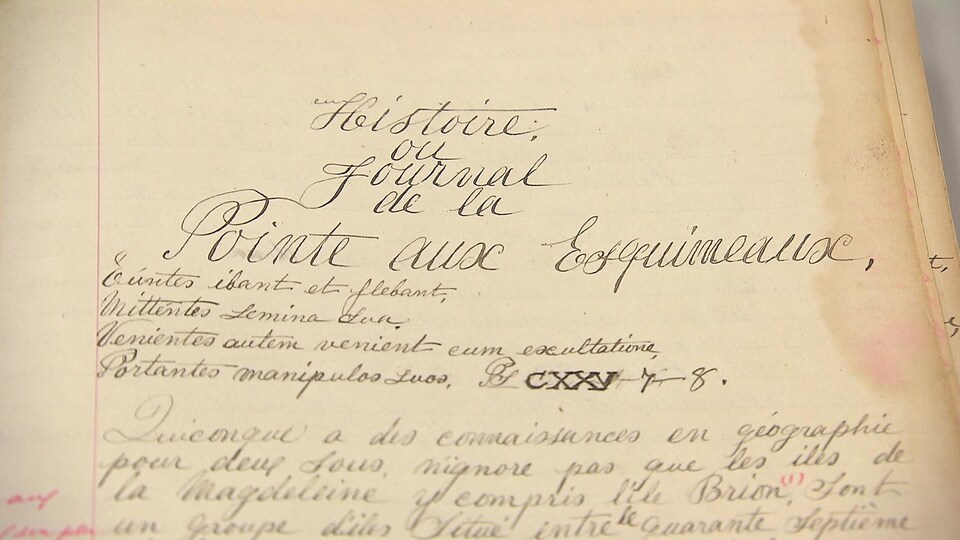 Histoire,
ou
Journal
de la
Pointe aux Esquimeaux,
Eúntes ibant et flebant,
Mittentes Semina Sua.
Venientes autem venient cum exultatione,
Portantes manipulos Suos. Ps CXXV 7-8.
Quiconque a des connaissances en géographie
pour deux Sous, n'ignore pas que les iles de
la Magdeleine y compris l'ile Brion, (1) Sont
un groupe d'iles Situé entre le quarante Septième